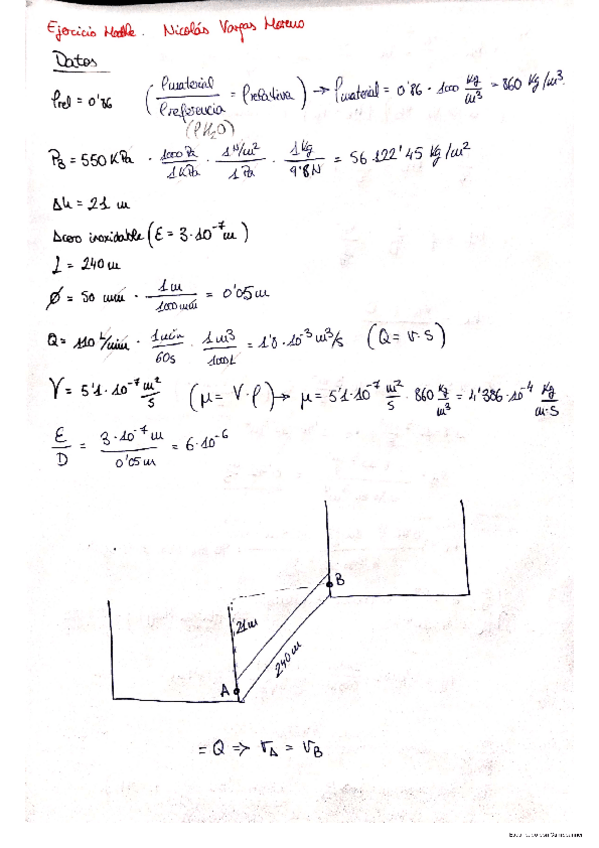 Ejercicio Moodle. Nicolás Vargas Moreno
Datos
ρrel = 0'86 (ρmaterial / ρreferencia = ρrelativa) → ρmaterial = 0'86 · 1000 kg/m³ = 860 Kg/m³.
(ρH₂O)
P_B = 550 KPa · 1000 Pa / 1 KPa · 1 N/m² / 1 Pa · 1 Kg / 9'8 N = 56 122'45 Kg/m²
Δh = 21 m
Acero inoxidable (ε = 3·10⁻⁷ m)
L = 240 m
Ø = 50 mm · 1 m / 1000 mm = 0'05 m
Q = 110 L/min · 1 min / 60 s · 1 m³ / 1000 L = 1'8·10⁻³ m³/s (Q = v·S)
V = 5'1·10⁻⁷ m²/s (μ = V·ρ) → μ = 5'1·10⁻⁷ m²/s · 860 Kg/m³ = 4'386·10⁻⁴ Kg/m·s
ε/D = 3·10⁻⁷ m / 0'05 m = 6·10⁻⁶
B
21 m
240 m
A
= Q ⇒ v_A = v_B